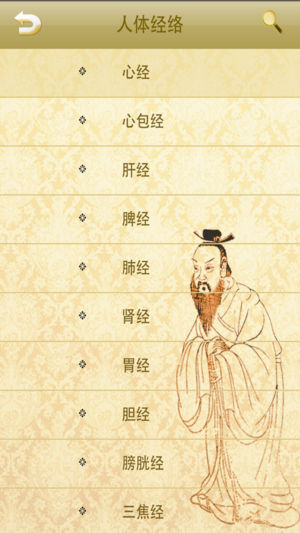 人体经络
心经
心包经
肝经
脾经
肺经
肾经
胃经
胆经
膀胱经
三焦经